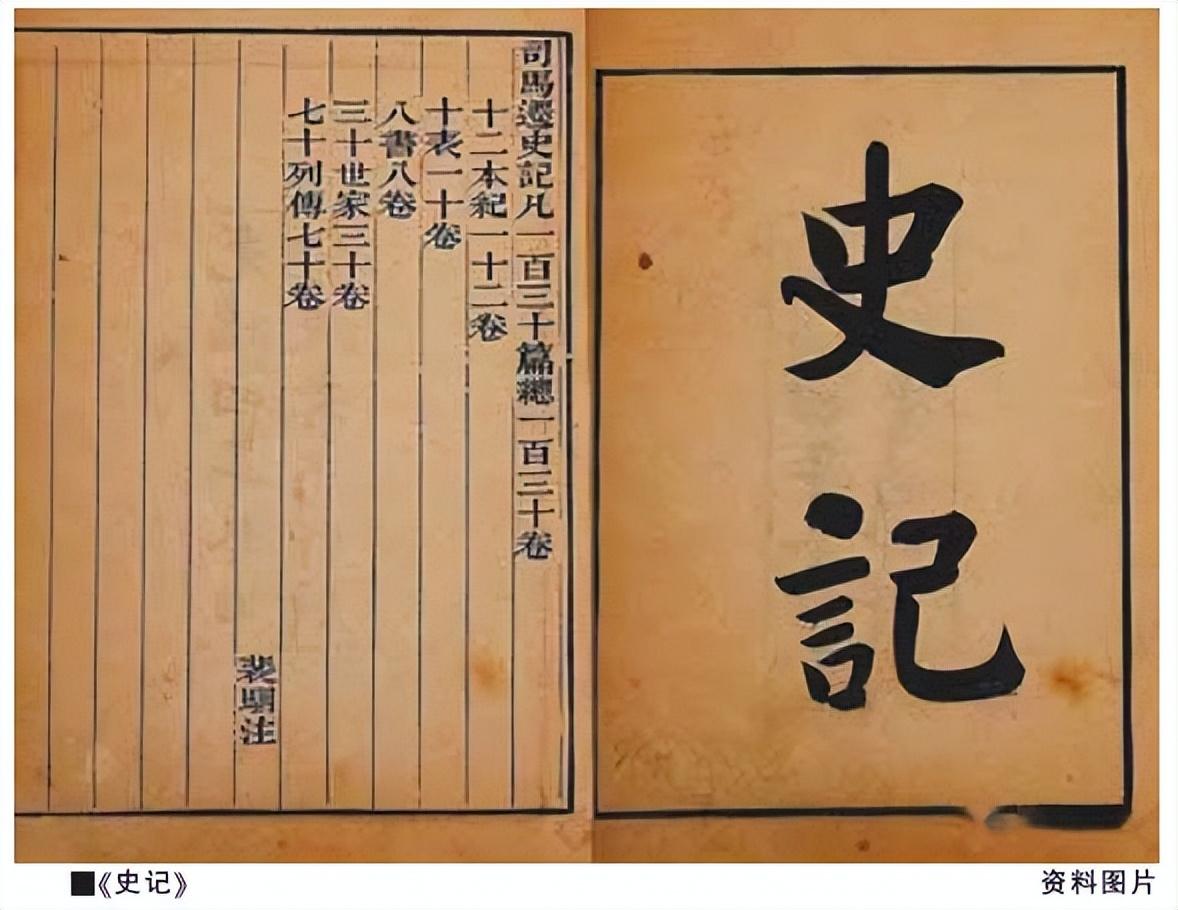 史記
司馬遷史記凡一百三十篇總一百三十卷
十二本紀一十二卷
十表一十卷
八書八卷
三十世家三十卷
七十列傳七十卷
裴駰注
■《史记》
资料图片